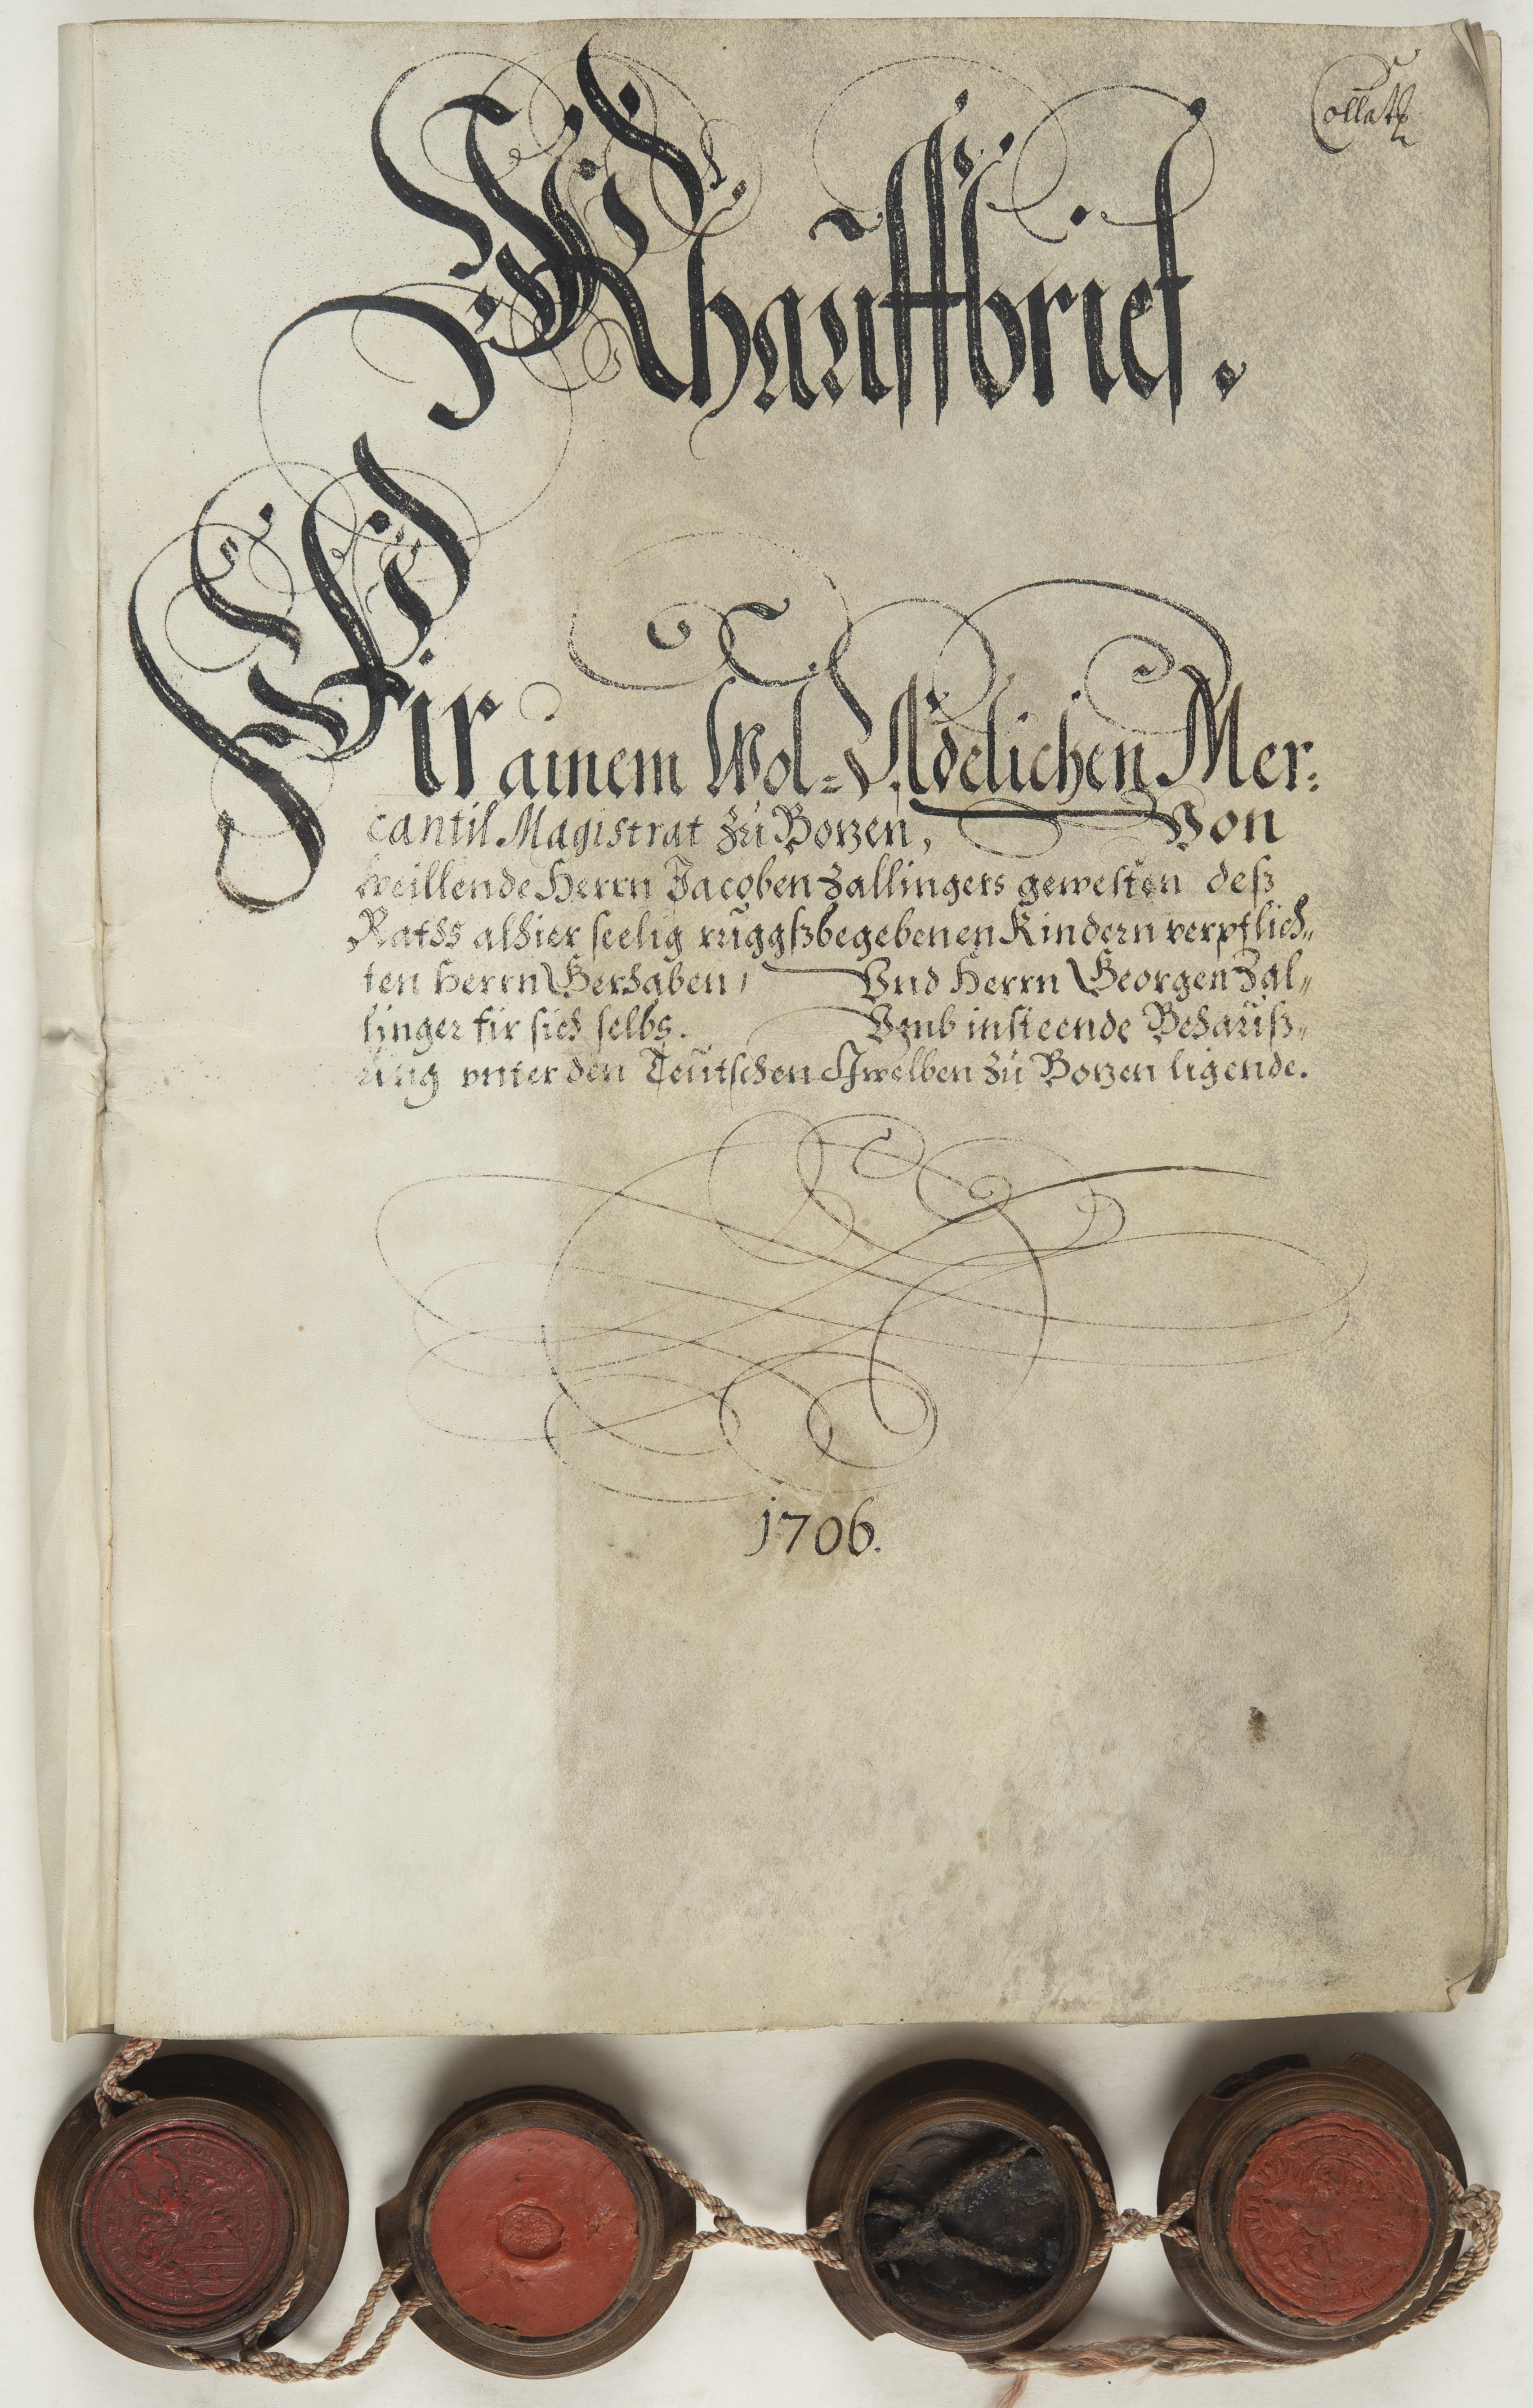 Collat
Khauffbrief.
Fir ainem Wol=Adelichen Mer:
cantil Magistrat zu Bozen, Von
weillende Herrn Jacoben Zallingers gewesten deß
Raths alhier seelig ruggßbegebenen Kindern verpflich„
ten Herrn Gerhaben, Vnd Herrn Georgen Zal„
linger fir sich selbs. Vmb insteende Behauß„
ung vnter den Teutschen Gwelben zu Bozen ligende.
1706.